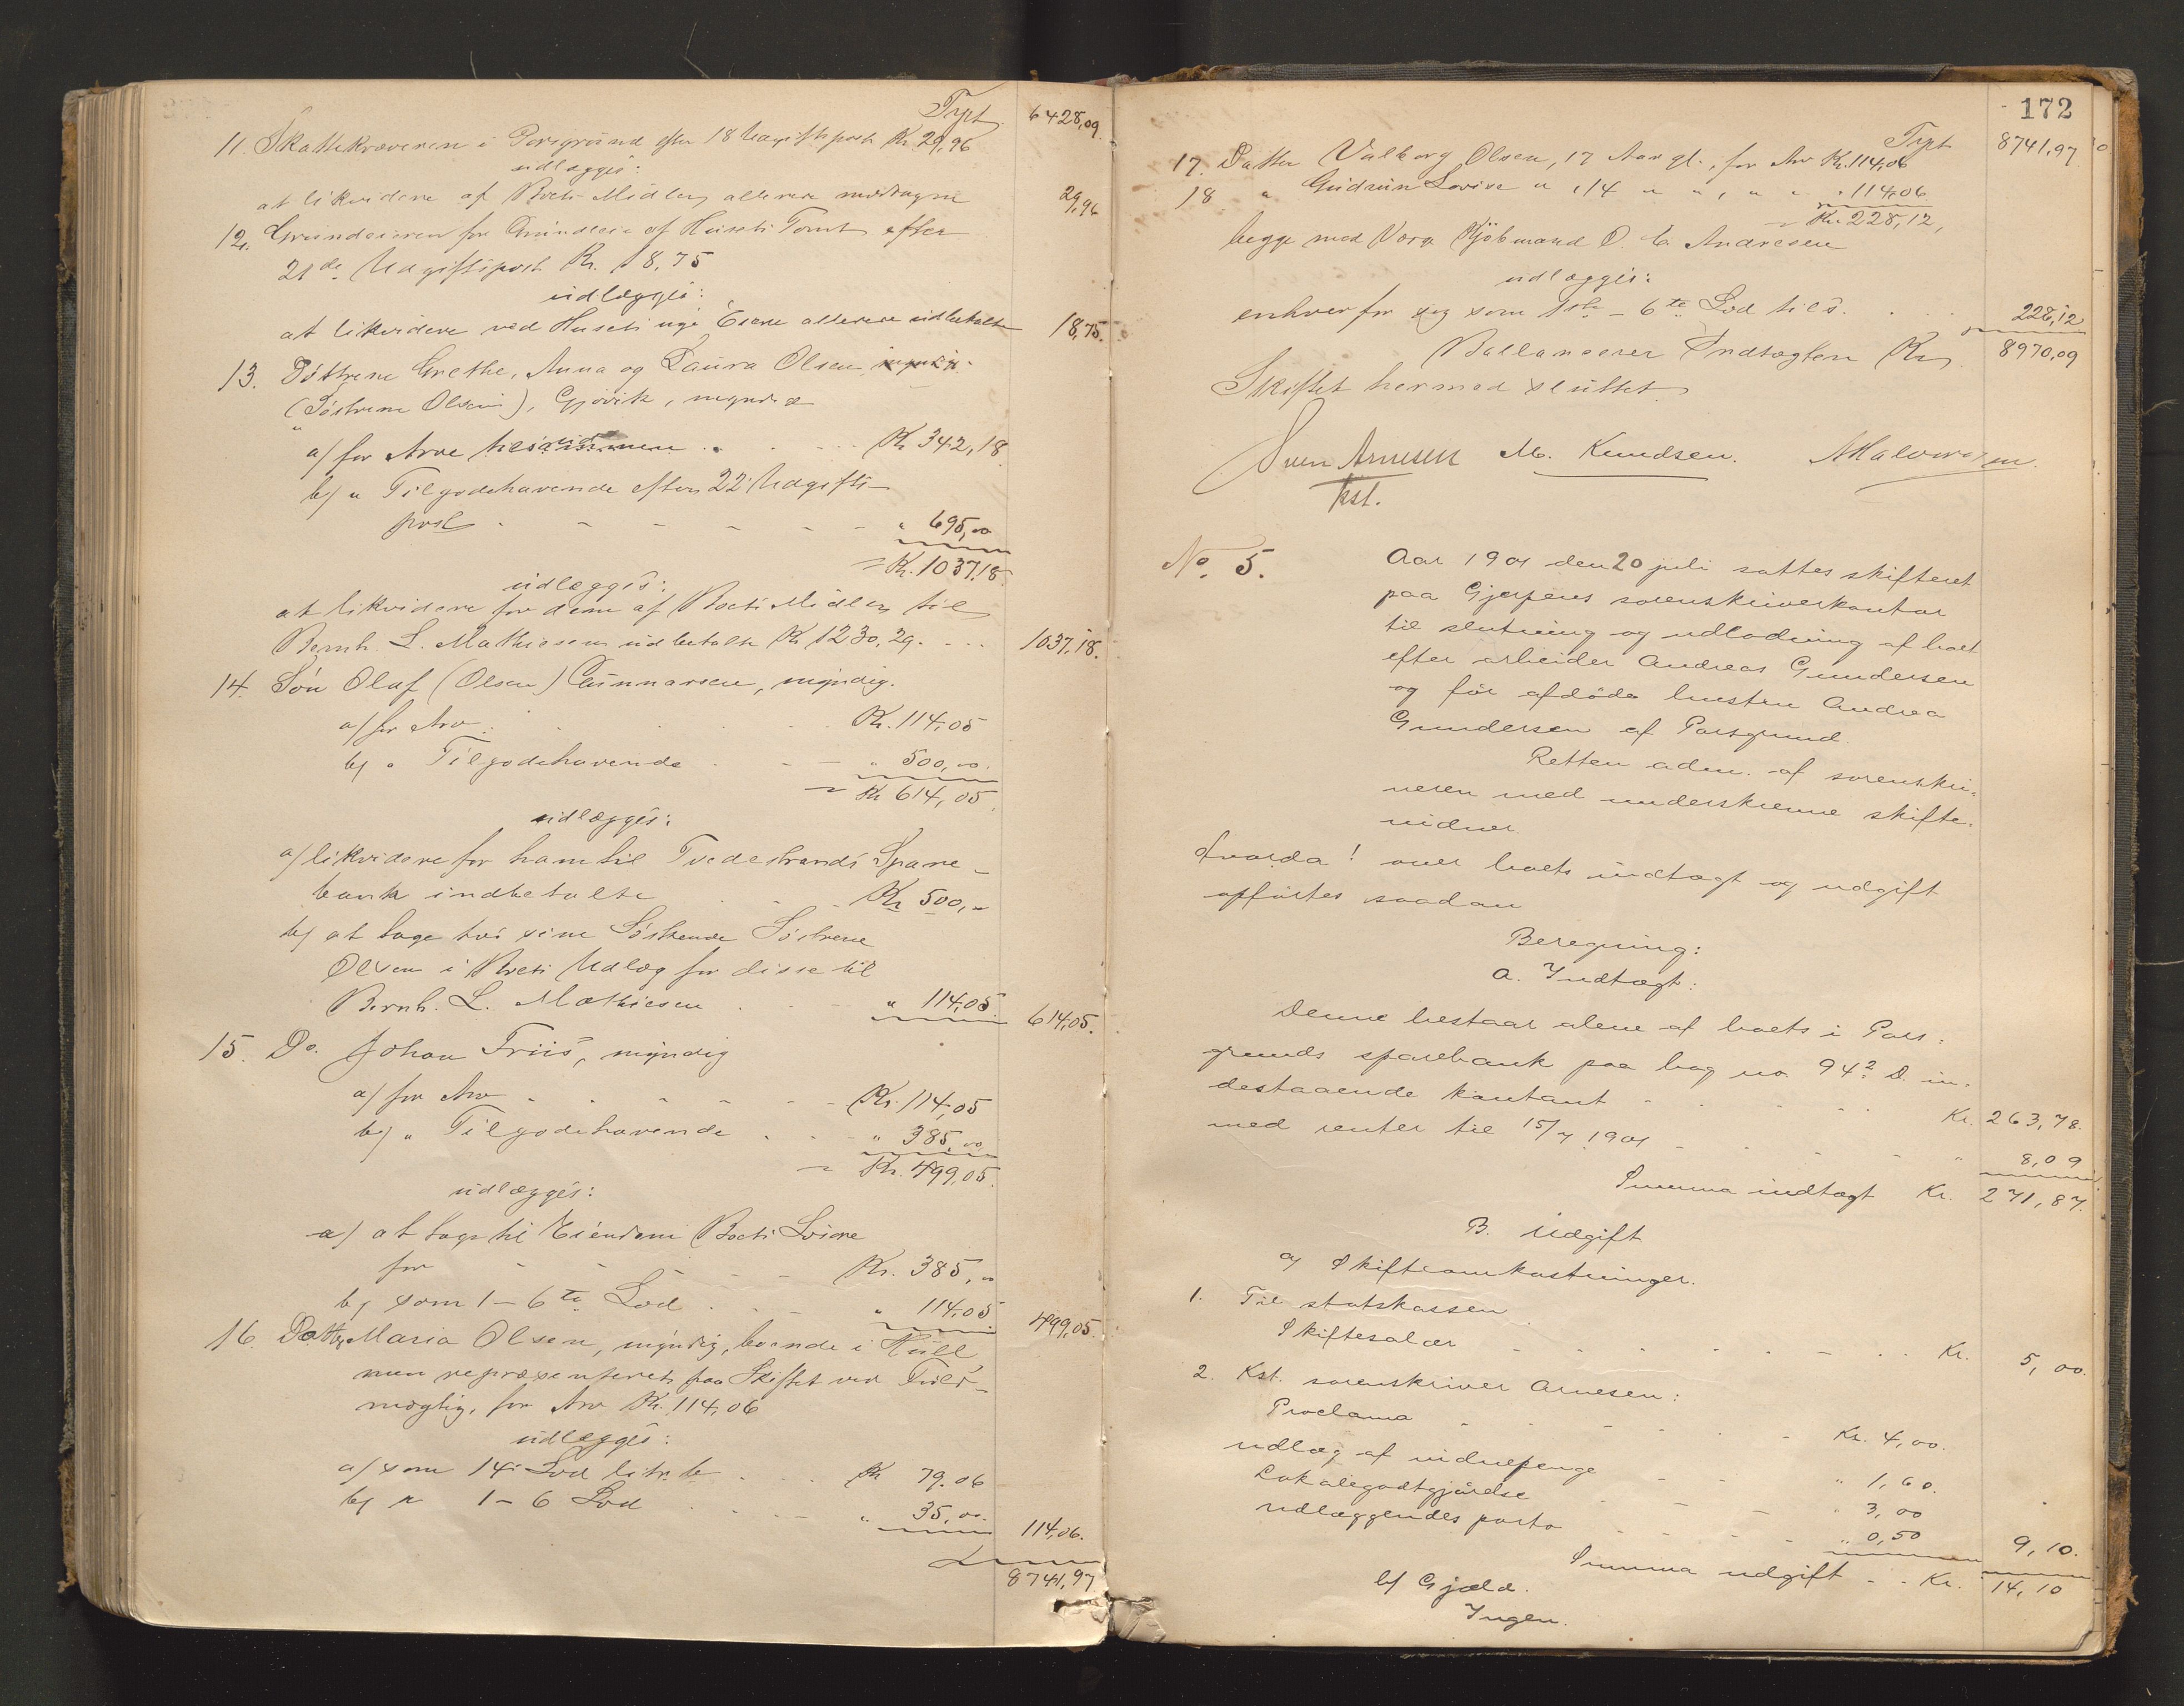 Trpt. 6428,09.
11. Skattekræveren i Porsgrund efter 18 Udgiftspost Kr. 29,96
udlægges:
at likvidere af Boets Midler allerede modtagne 29,96
12. Grundeieren for Grundleie af Husets Tomt efter
21de Udgiftspost Kr. 18,75
udlægges:
at likvidere ved Husets nye Eiere allerede udbetalte 18,75.
13. Døttrene Grethe, Anna og Laura Olsen,
(Søstrene Olsen), Gjøvik, myndige
a/ for Arv tilsammen . . . Kr. 342,18
b/ " Tilgodehavende efter 22 Udgifts-
post - - - - - - " 695,00
= Kr. 1037,18.
udlægges:
at likvidere for dem af Boets Midler til
Bernh. L. Mathiesen udbetalte Kr. 1230,29. ... 1037,18.
14. Søn Olaf (Olsen) Gunnarsen, myndig.
a/ for Arv . . . Kr. 114,05
b/ " Tilgodehavende . - - " 500,00.
= Kr. 614,05
udlægges:
a/ likvidere for ham til Tvedestrands Spare-
bank indbetalte . . . Kr. 500,00
b/ at tage hos sine Søskende Søstrene
Olsen i Boets Udlæg for disse til
Bernh. L. Mathiesen . . - " 114,05. 614,05.
15. Do. Johan Friis, myndig
a/ for Arv - - - - - Kr. 114,05
b/ " Tilgodehavende . - - " 385,00
= Kr. 499,05.
udlægges:
a/ at tage til Eiendom Boets Løsøre
for - - - - - Kr. 385,00
b/ som 1-6te Lod . . - " 114,05 499,05.
16. Datter Maria Olsen, myndig, boende i Hull,
men repræsenteret paa Skiftet ved Fuld-
mægtig, for Arv Kr. 114,06
udlægges:
a/ som 14. Lod litr. b . . Kr. 79.06
b/ " 1-6 Lod . . . - " 35,00. 114,06.
8741,97
172
Trpt 8741,97
17. Datter Valborg Olsen, 17 Aar gl., for Arv Kr. 114,06
18 " Gudrun Lovise " , 14 " " , " " " 114,06
= Kr. 228,12,
begge med Verge Kjøbmand O. C. Andresen
udlægges:
enhver for sig som 1ste - 6te Lod tils. . . . 228,12
Ballancerer Indtægten Kr. 8970,09
Skiftet hermed sluttet.
Sven Arnesen M. Knudsen. AHalvorsen.
kst.
No. 5. Aar 1901 den 20 juli sattes skifteret
paa Gjerpens sorenskriverkontor
til slutning og udlodning af boet
efter arbeider Andreas Gundersen
og før afdøde hustru Andrea
Gundersen af Porsgrund.
Retten adm. af sorenskri-
veren med underskrevne skifte-
vidner.
Hvorda! over boets indtægt og udgift
opførtes saadan
Beregning:
A. Indtægt:
Denne bestaar alene af boets i Pors-
grunds sparebank paa bog no. 942 D. in-
destaaende kontant - . . . . Kr. 263,78.
med renter til 15/7 1901 - . . - - " 8,09
Summa indtægt Kr. 271,87.
B. Udgift
a/ Skifteomkostninger.
1. Til statskassen
Skiftesalær - - - - - - . . Kr. 5,00.
2. Kst. sorenskriver Arnesen:
Proclama - - - - . - Kr. 4,00.
udlæg af vidnepenge - - - " 1,60.
Lokalegodtgjørelse . - - - " 3,00
udlæggendes porto - - - - " 0,50 9,10.
Summa udgift - - Kr. 14,10
b/ Gjæld.
Ingen.